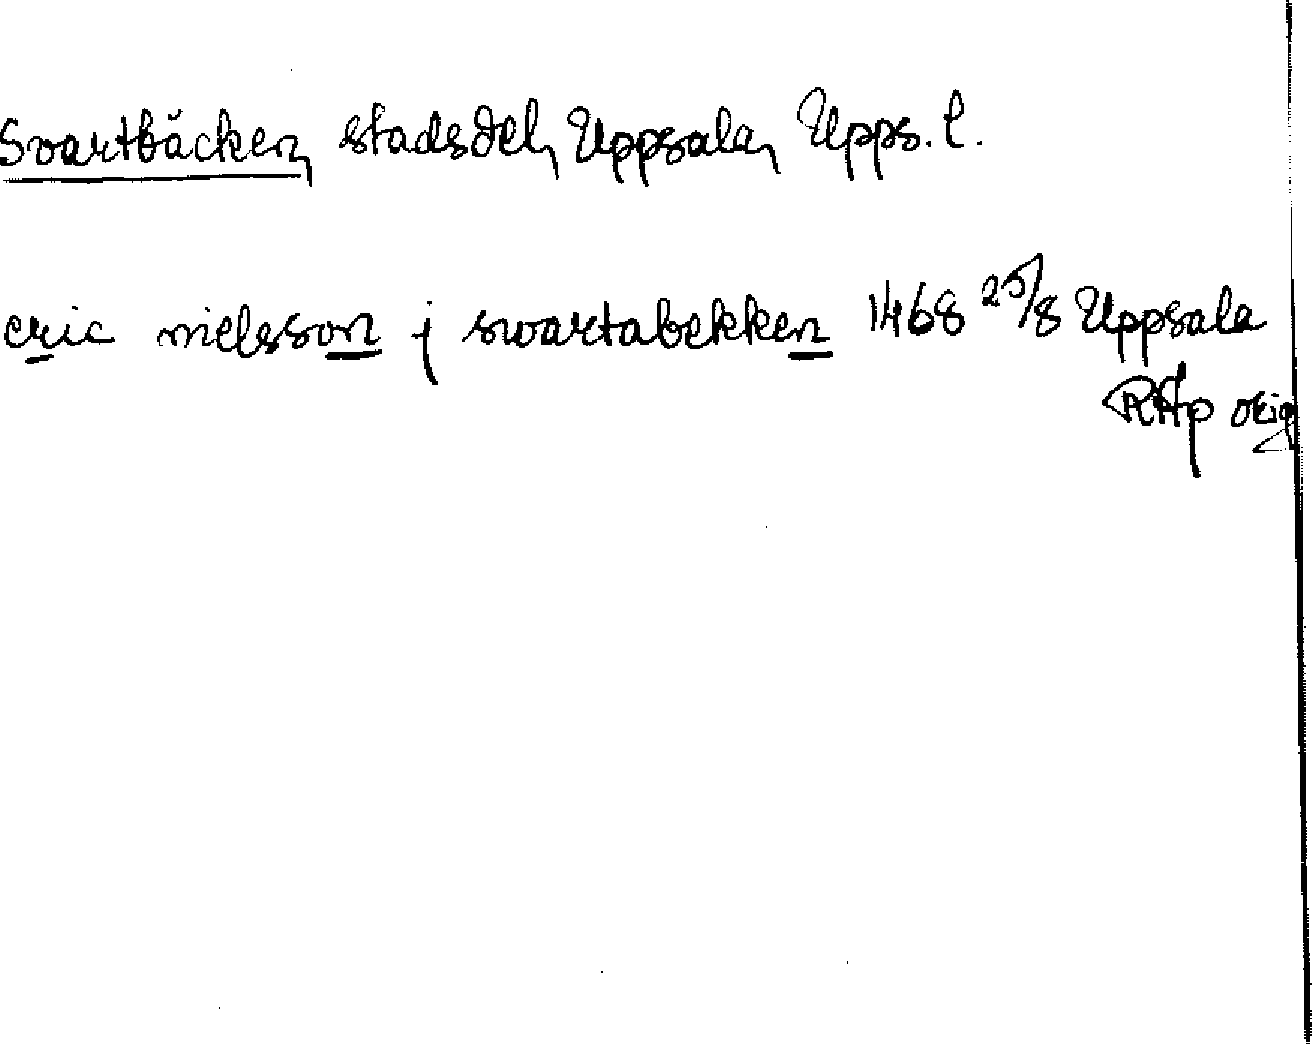 Svartbäcken, stadsdel, Uppsala, Upps. l.
eric nielsson j swartabekken 1468 25/8 Uppsala
RAp orig